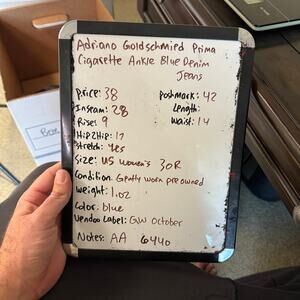 Adriano Goldschmied Prima
Cigarette Ankle Blue Denim
Jeans
Price: 38
Poshmark: 42
Inseam: 28
Length:
Rise: 9
Waist: 14
Hip2Hip: 17
Stretch: Yes
Size: US Women's 30R
Condition: Gently worn pre owned
Weight: 1.02
Color: blue
Vendoo Label: GW October
Notes: AA 6440
Box